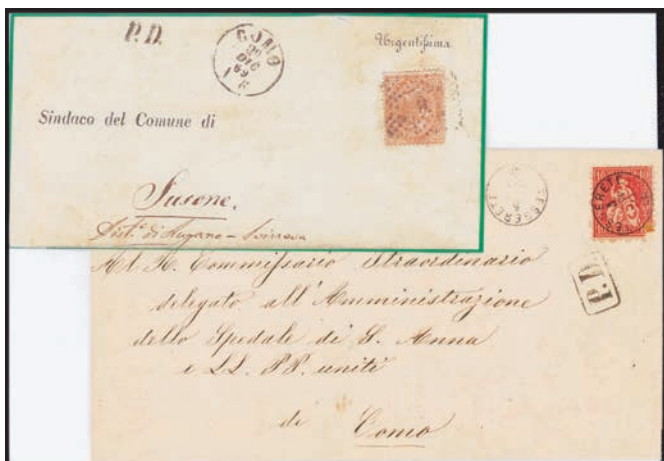 P.D.
COMO
DIC
69
Urgentissima
Sindaco del Comune di
Susone.
Dist.o di Lugano – Svizzera
TESSERETE
TESSERETE
P.D.
Al R. Commissario Straordinario
delegato all'Amministrazione
dello Spedale di S. Anna
e LL. PP. uniti
di Como